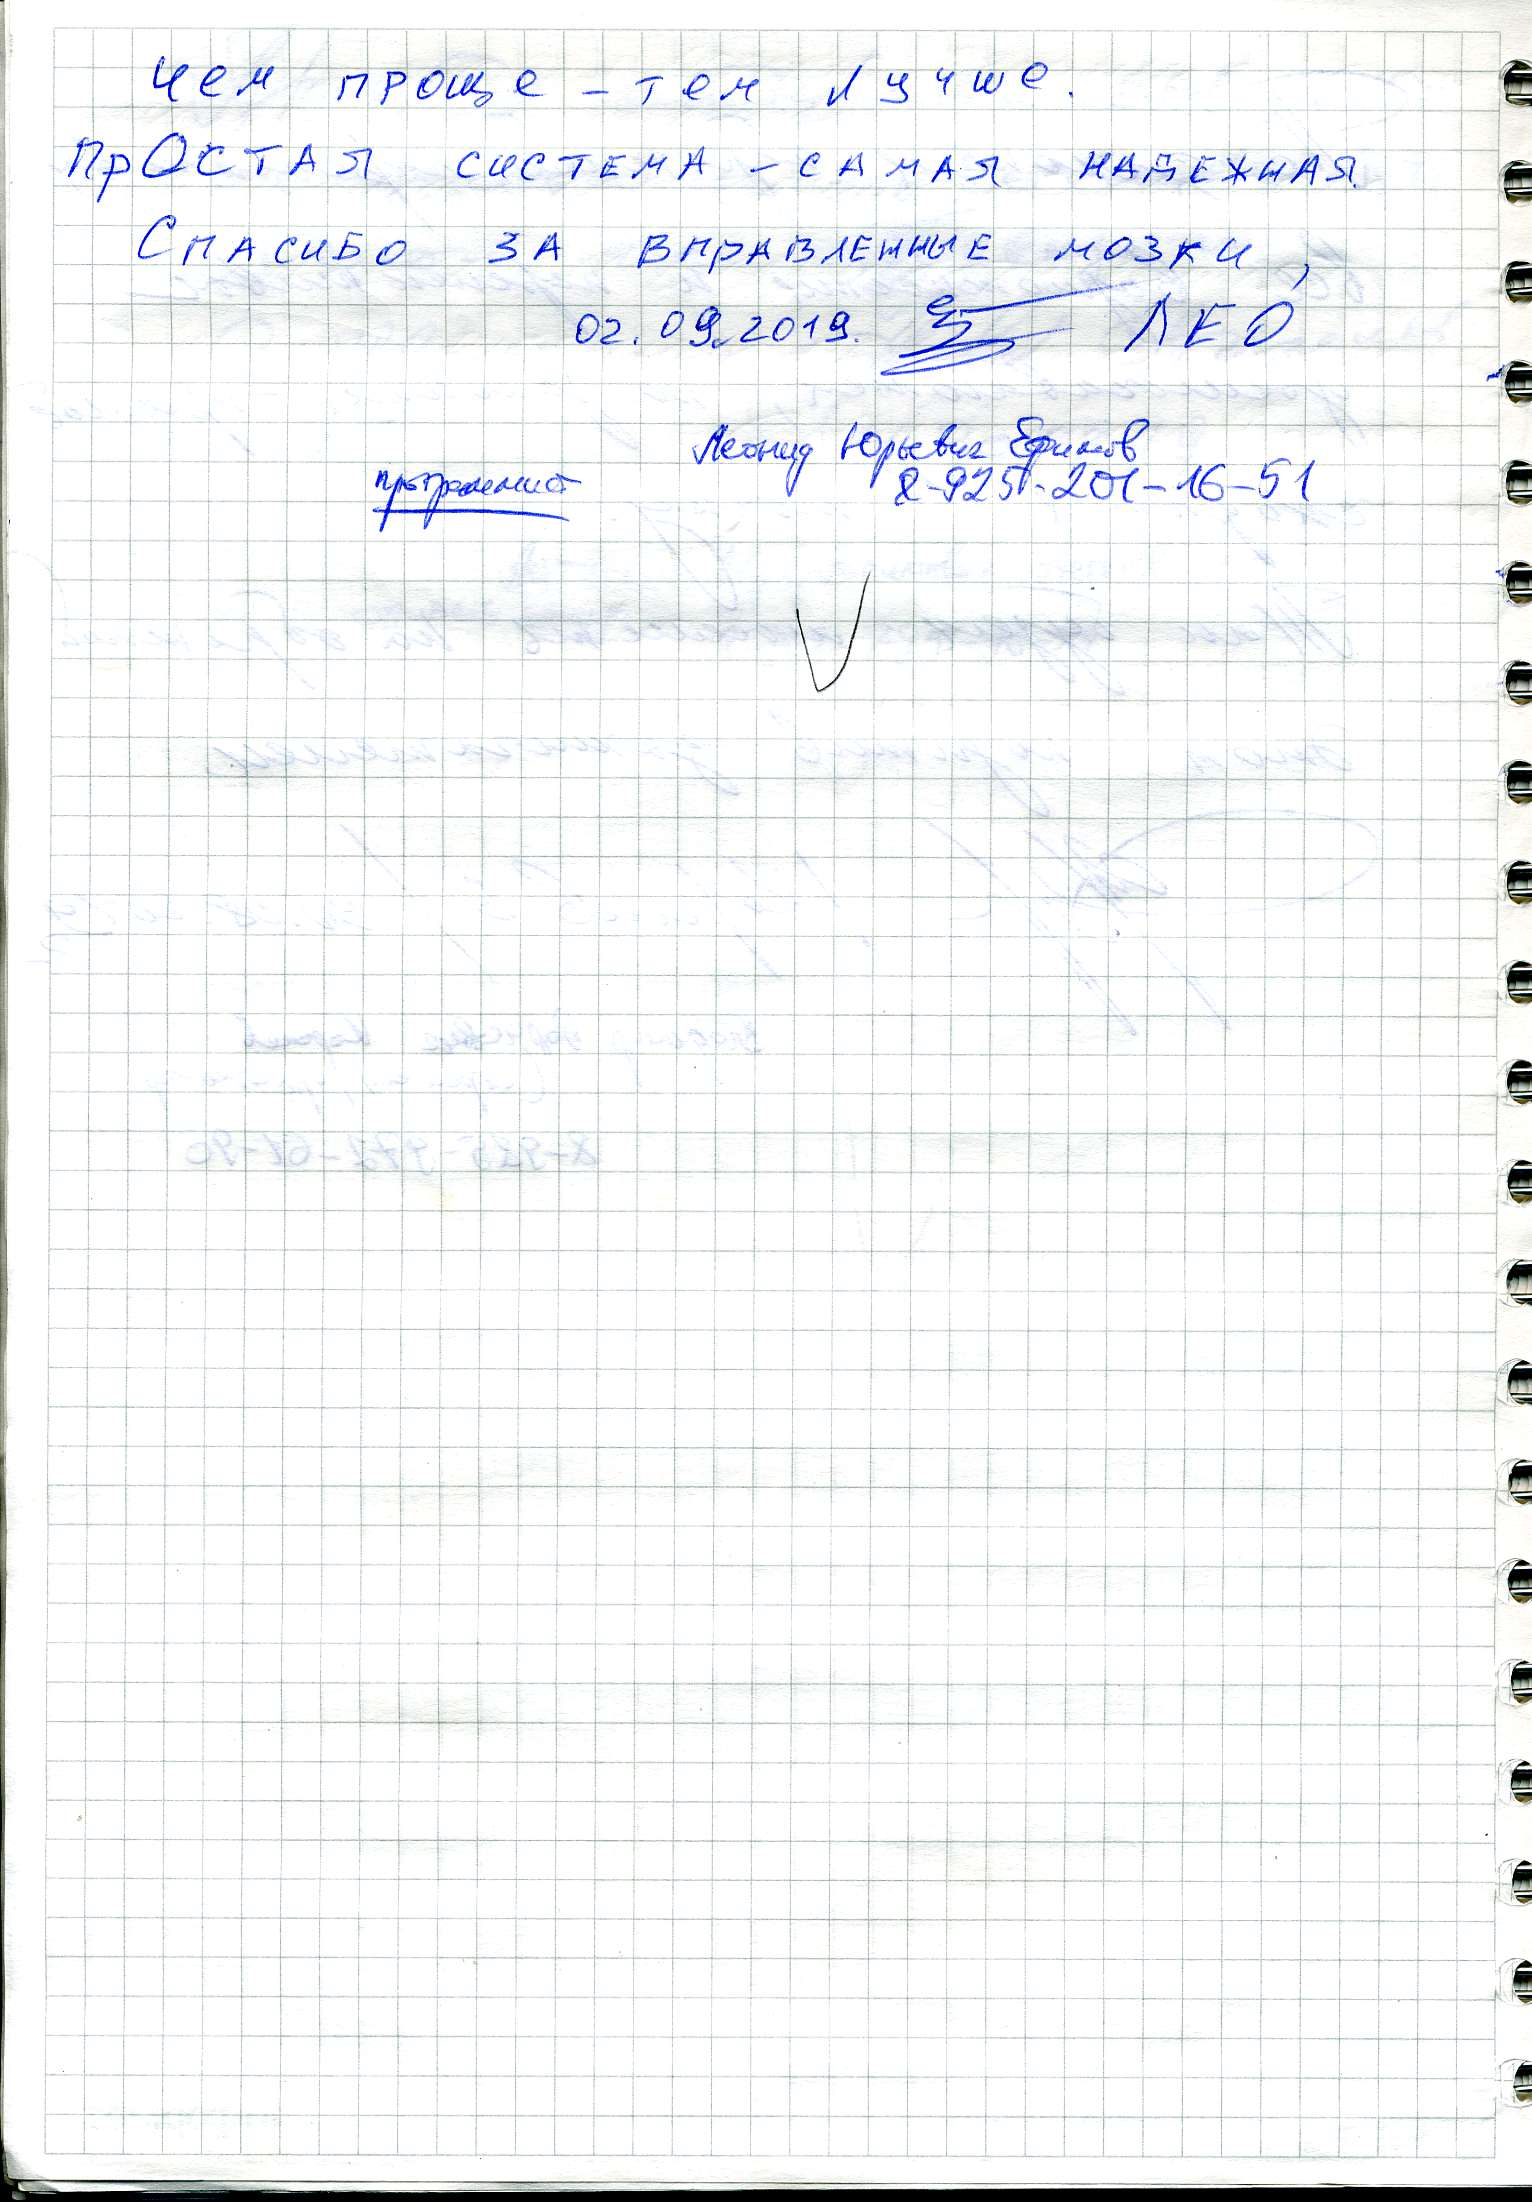 чем проще – тем лучше.
ПрОСТАЯ СИСТЕМА – САМАЯ НАДЕЖНАЯ.
СПАСИБО ЗА ВПРАВЛЕННЫЕ МОЗКИ,
02.09.2019. ЛЕО
Леонид Юрьевич Ефимов
программист 8-925-201-16-51